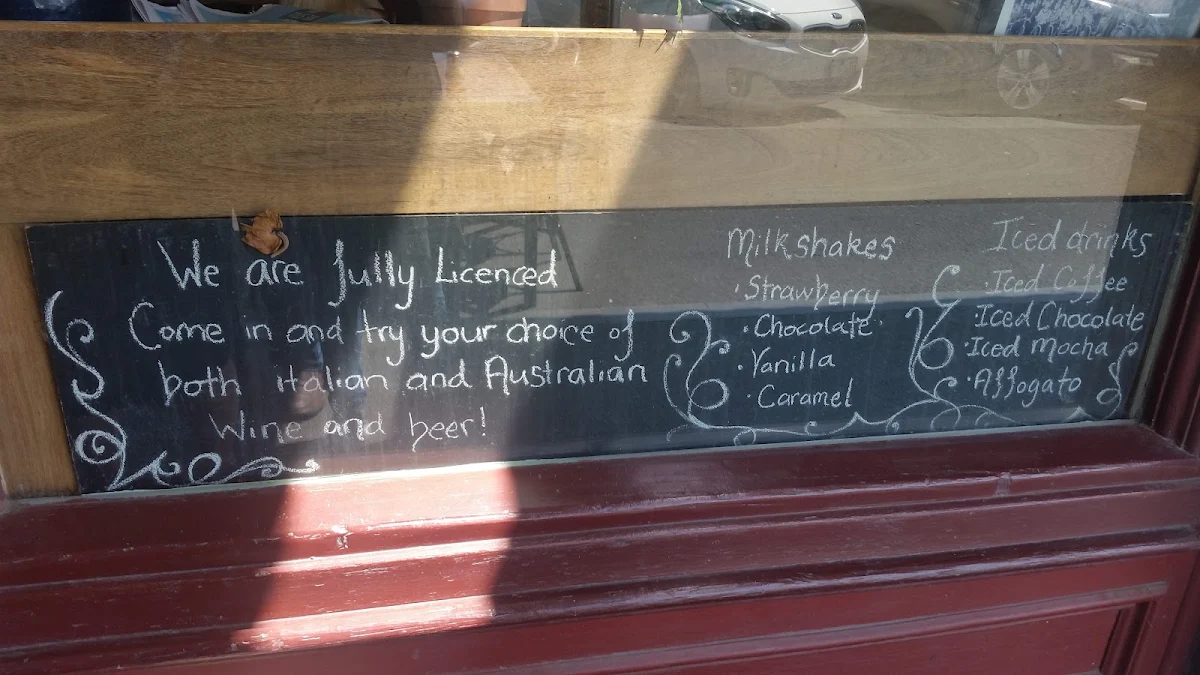 We are fully Licenced
Come in and try your choice of
both italian and Australian
Wine and beer!
Milkshakes
· Strawberry
· Chocolate
· Vanilla
· Caramel
Iced drinks
· Iced Coffee
· Iced Chocolate
· Iced Mocha
· Affogato